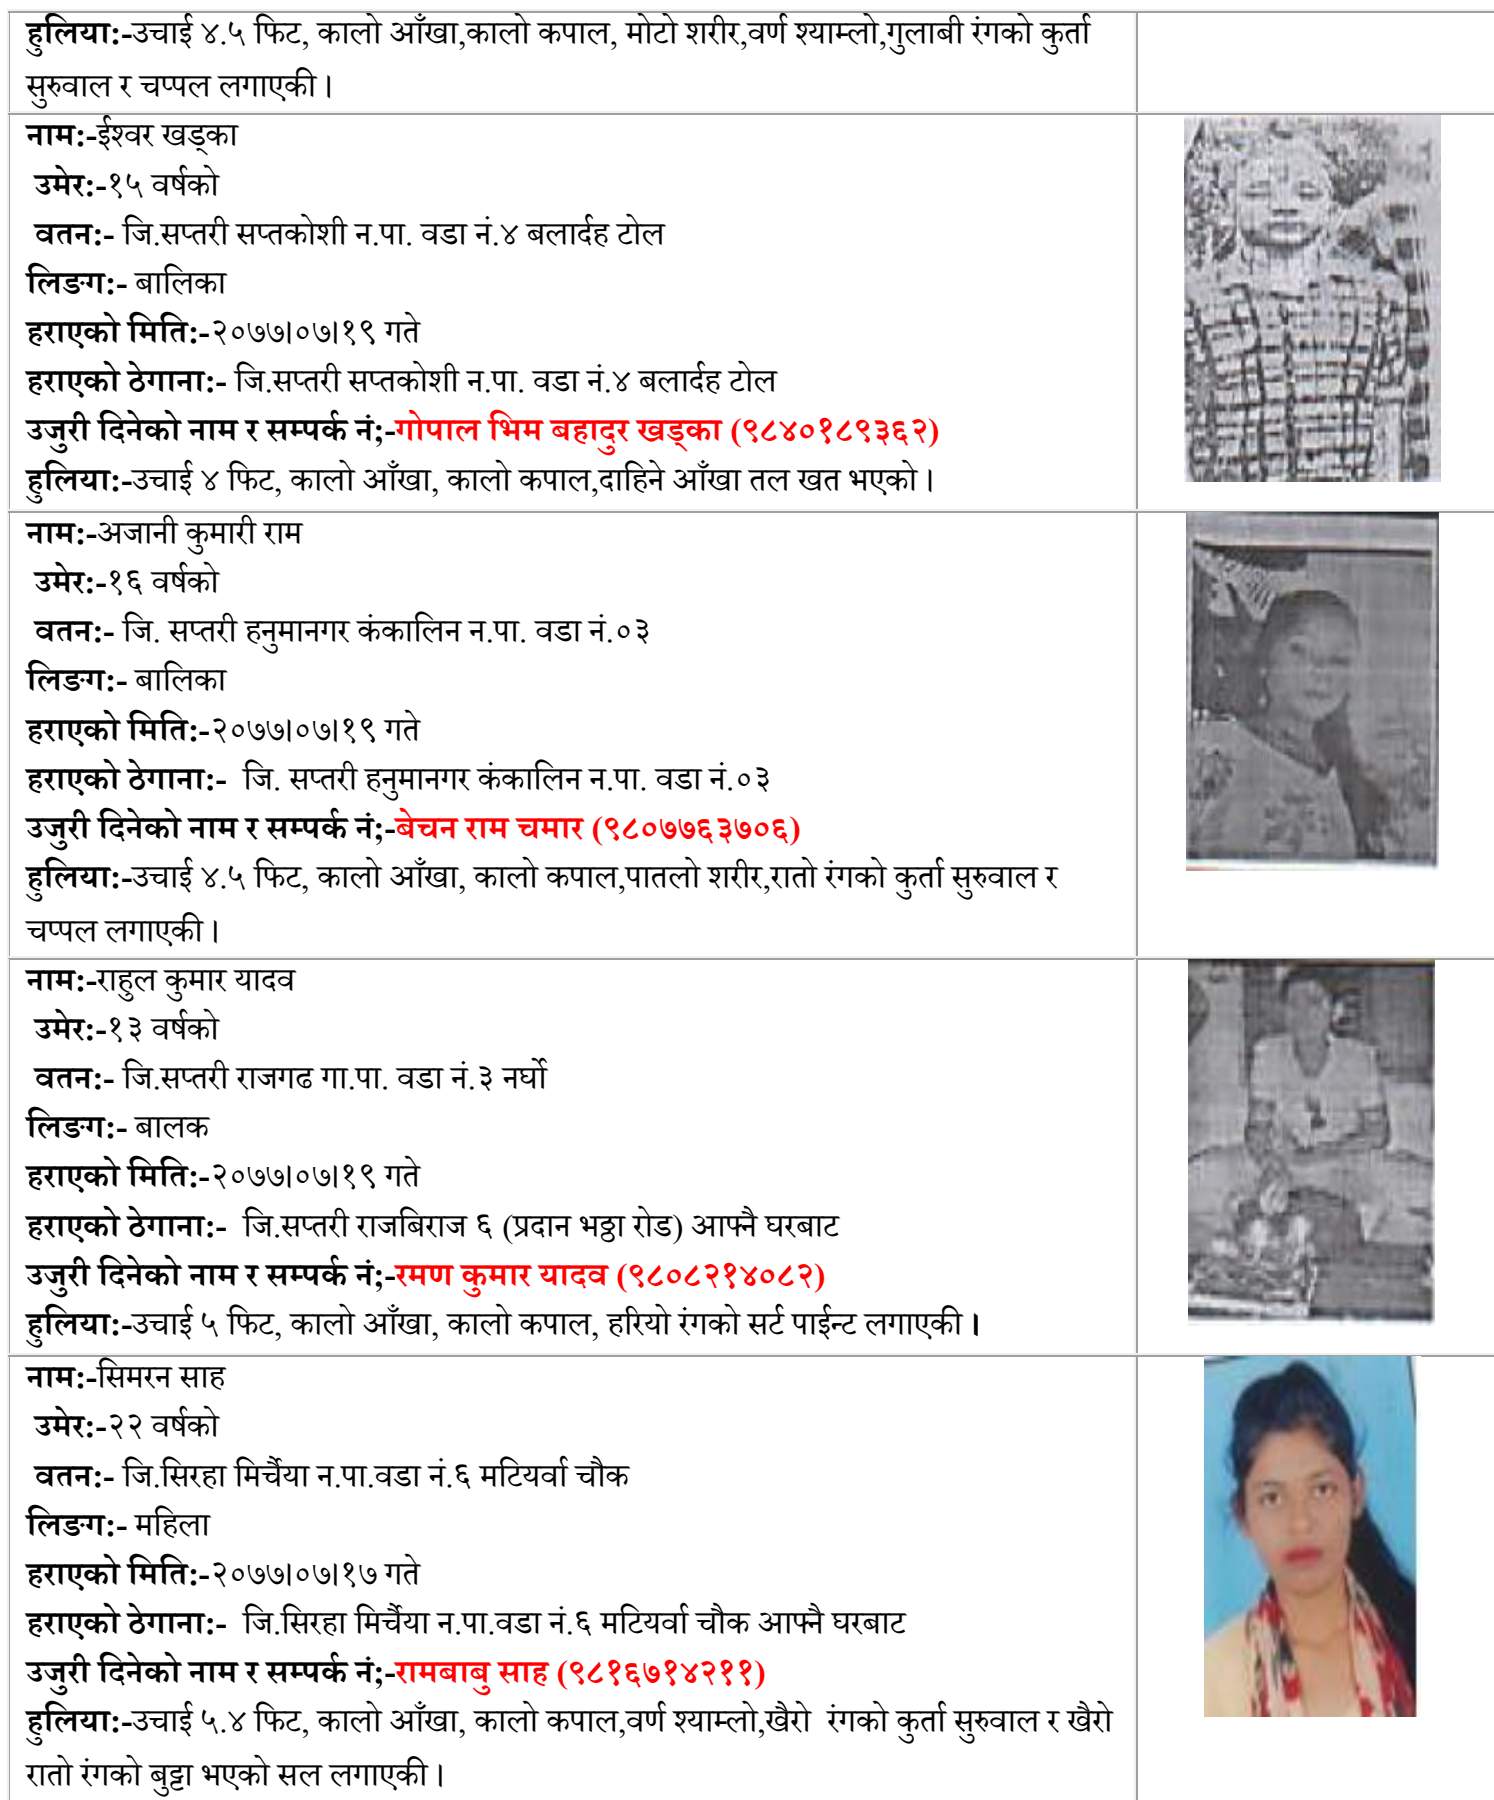 हुलिया:-उचाई ४.५ फिट, कालो आँखा,कालो कपाल, मोटो शरीर,वर्ण श्याम्लो,गुलाबी रंगको कुर्ता
सुरुवाल र चप्पल लगाएकी।
नाम:-ईश्वर खड्का
उमेर:-१५ वर्षको
वतन:- जि.सप्तरी सप्तकोशी न.पा. वडा नं.४ बलार्दह टोल
लिङग:- बालिका
हराएको मिति:-२०७७।०७।१९ गते
हराएको ठेगाना:- जि.सप्तरी सप्तकोशी न.पा. वडा नं.४ बलार्दह टोल
उजुरी दिनेको नाम र सम्पर्क नं;-गोपाल भिम बहादुर खड्का (९८४०१८९३६२)
हुलिया:-उचाई ४ फिट, कालो आँखा, कालो कपाल,दाहिने आँखा तल खत भएको।
नाम:-अजानी कुमारी राम
उमेर:-१६ वर्षको
वतन:- जि. सप्तरी हनुमानगर कंकालिन न.पा. वडा नं.०३
लिङग:- बालिका
हराएको मिति:-२०७७।०७।१९ गते
हराएको ठेगाना:- जि. सप्तरी हनुमानगर कंकालिन न.पा. वडा नं.०३
उजुरी दिनेको नाम र सम्पर्क नं;-बेचन राम चमार (९८०७७६३७०६)
हुलिया:-उचाई ४.५ फिट, कालो आँखा, कालो कपाल,पातलो शरीर,रातो रंगको कुर्ता सुरुवाल र
चप्पल लगाएकी।
नाम:-राहुल कुमार यादव
उमेर:-१३ वर्षको
वतन:- जि.सप्तरी राजगढ गा.पा. वडा नं.३ नर्घो
लिङग:- बालक
हराएको मिति:-२०७७।०७।१९ गते
हराएको ठेगाना:- जि.सप्तरी राजबिराज ६ (प्रदान भठ्ठा रोड) आफ्नै घरबाट
उजुरी दिनेको नाम र सम्पर्क नं;-रमण कुमार यादव (९८०८२१४०८२)
हुलिया:-उचाई ५ फिट, कालो आँखा, कालो कपाल, हरियो रंगको सर्ट पाईन्ट लगाएकी।
नाम:-सिमरन साह
उमेर:-२२ वर्षको
वतन:- जि.सिरहा मिर्चैया न.पा.वडा नं.६ मटियर्वा चौक
लिङग:- महिला
हराएको मिति:-२०७७।०७।१७ गते
हराएको ठेगाना:- जि.सिरहा मिर्चैया न.पा.वडा नं.६ मटियर्वा चौक आफ्नै घरबाट
उजुरी दिनेको नाम र सम्पर्क नं;-रामबाबु साह (९८१६७१४२११)
हुलिया:-उचाई ५.४ फिट, कालो आँखा, कालो कपाल,वर्ण श्याम्लो,खैरो रंगको कुर्ता सुरुवाल र खैरो
रातो रंगको बुट्टा भएको सल लगाएकी।